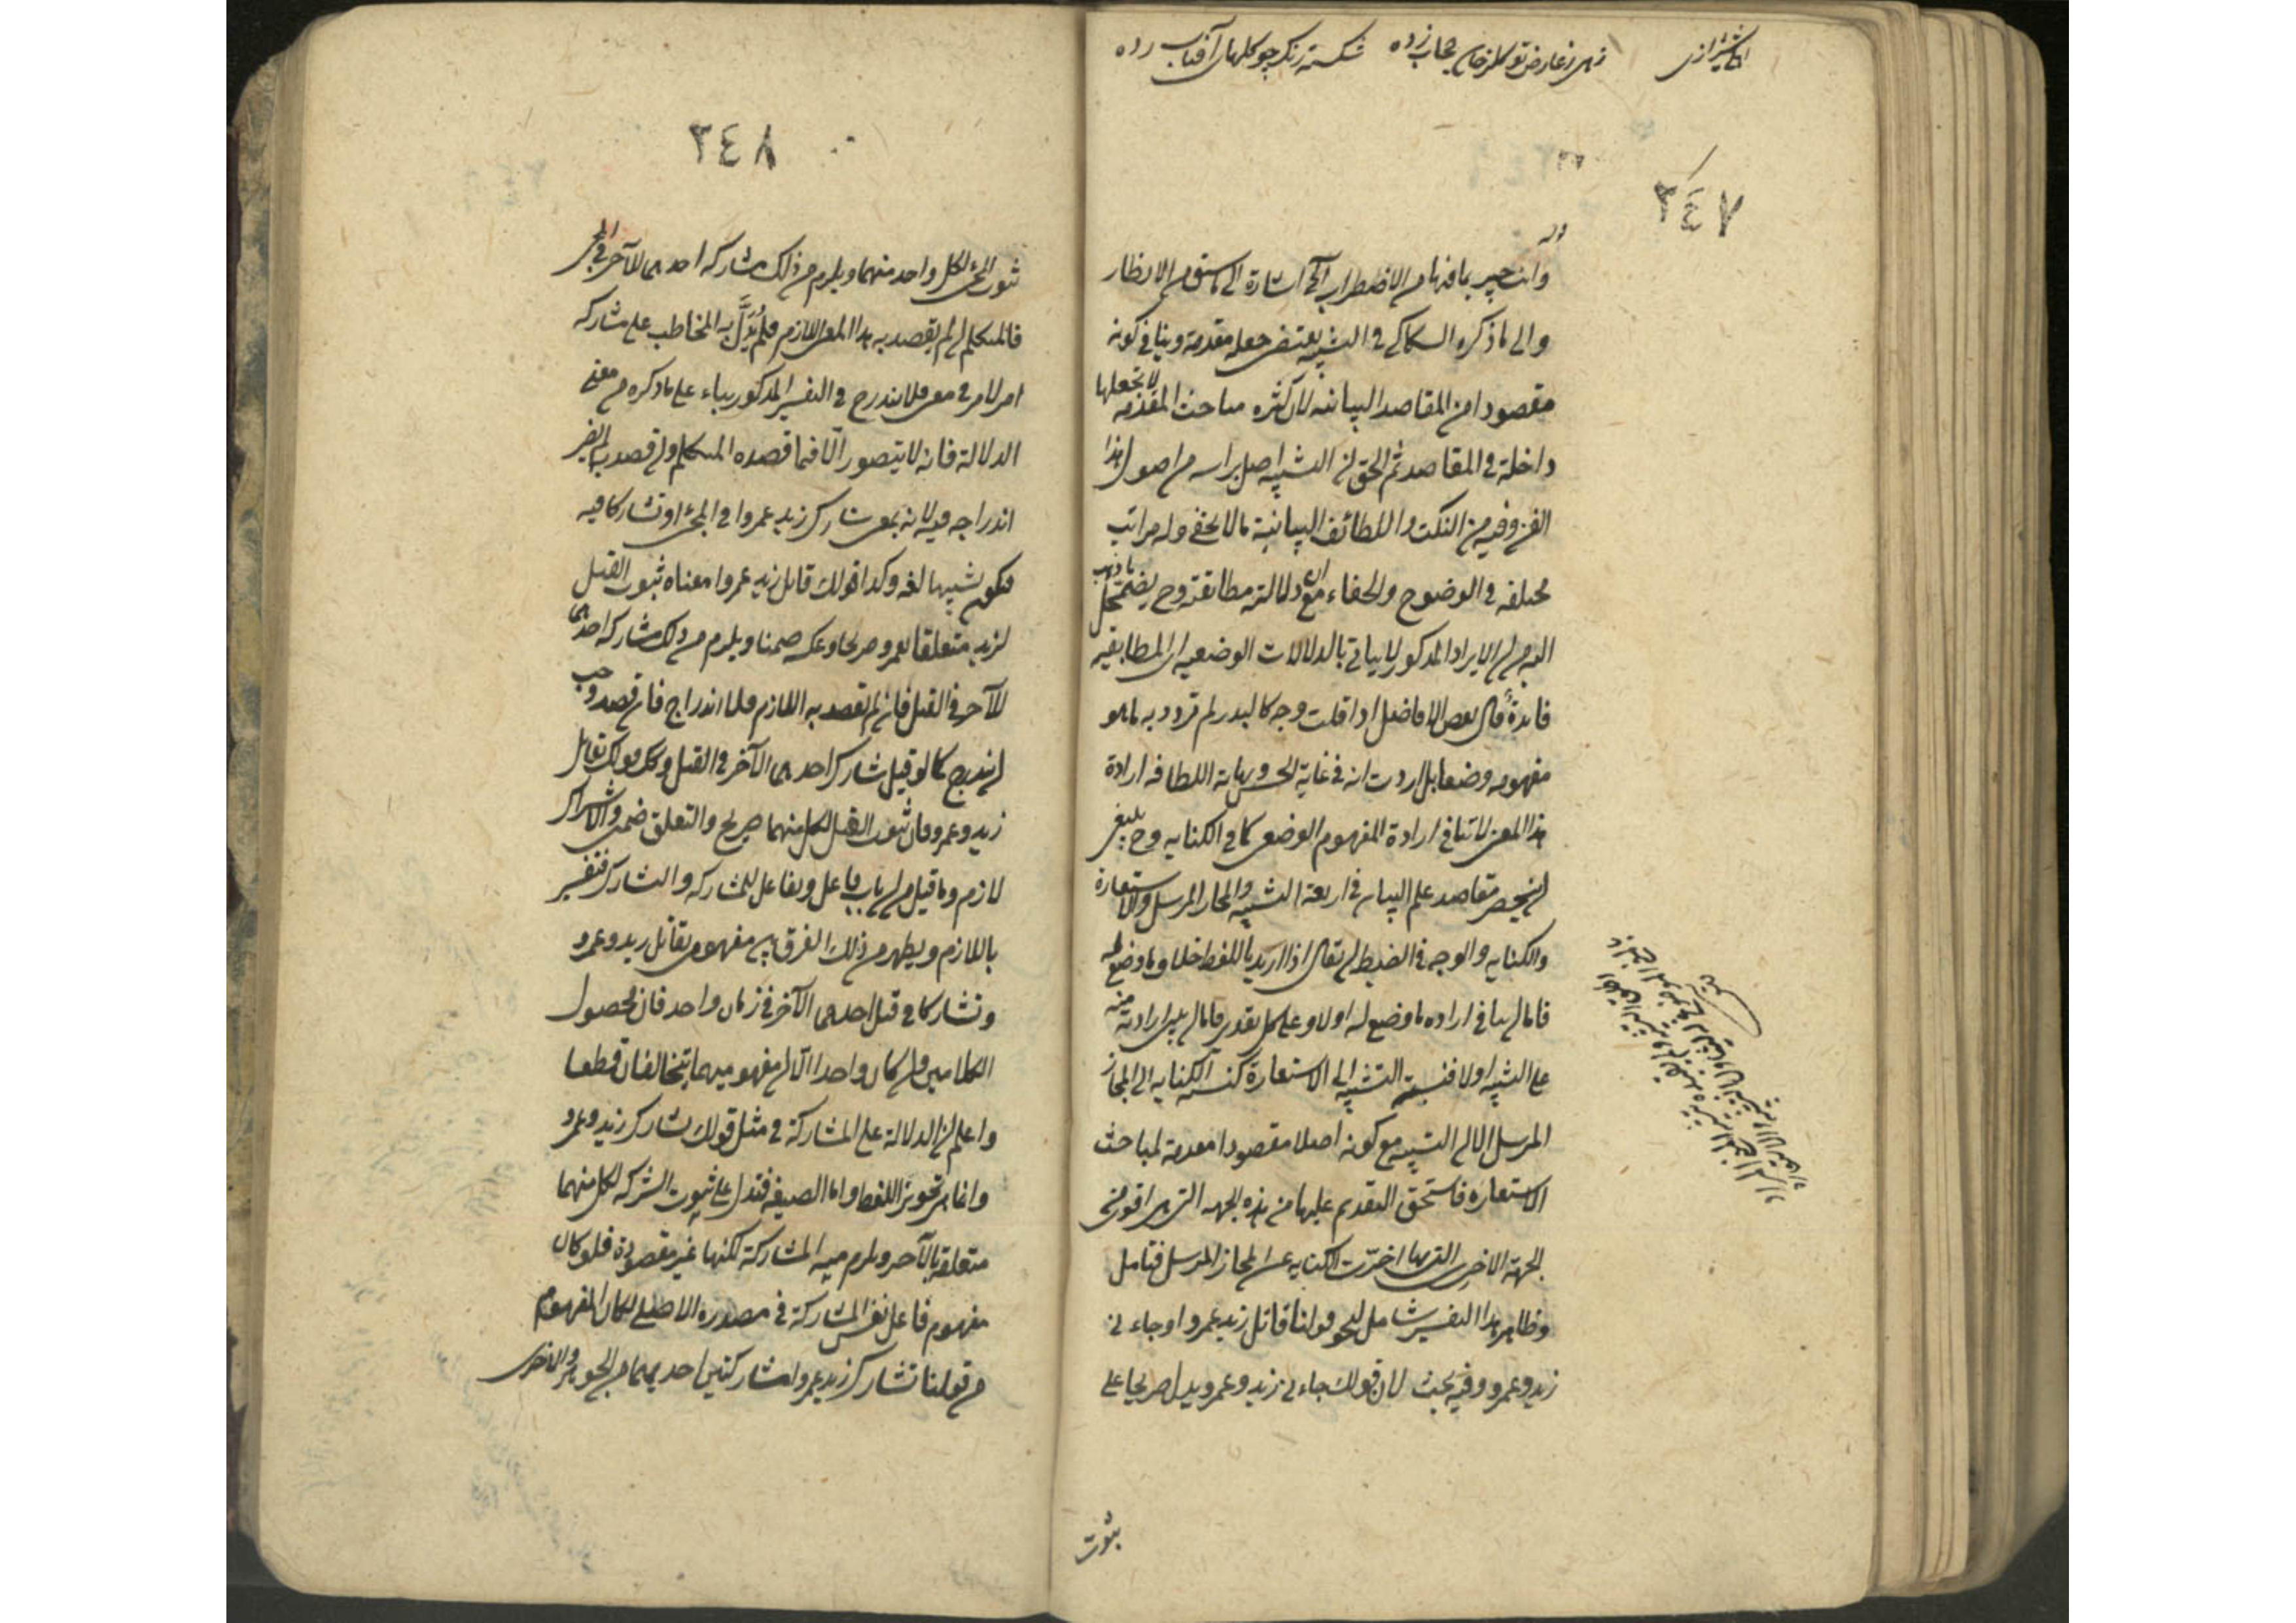 زهی ز عارض تو گلرخان حجاب زده شکسته رنگ چو گلهای آفتاب زده
٣٤٧
وانت خبير بما فيها من الاضطراب آه اشارة الى ما سبق من الانظار
والى ما ذكره السكاكى فى التشبيه يقتضى جعله مقدمة وينافى كونه
مقصودا من المقاصد البيانيه لان كثره مباحث المقدمه لا تجعلها
داخلة فى المقاصد ثم الحق ان التشبيه اصل براسه من اصول هذا
الفن وفيه من النكت واللطائف البيانية ما لا يخفى وله مراتب
مختلفه فى الوضوح والخفاء مع ان دلالته مطابقة وح يضمحل ما ذهب
اليه من ان الايراد المذكور لا يتاتى بالدلالات الوضعيه اى المطابقيه
فائدة قال بعض الافاضل اذا قلت وجه كالبدر لم ترد به ما هو
مفهومه وضعا بل اردت انه فى غاية الحسن ونهاية اللطافه ارادة
هذا المعنى لا تنافى ارادة المفهوم الوضعى كما فى الكنايه وح ينبغى
ان ينحصر مقاصد علم البيان فى اربعة التشبيه والمجاز المرسل والاستعارة
والكنايه والوجه فى الضبط ان يقال اذا اريد باللفظ خلاف ما وضع له
فاما ان ينافى اراده ما وضع له او لا وعلى كل تقدير فاما ان يبنى ارادته منه
على التشبيه او لا فنسبة التشبيه الى الاستعارة كنسبه الكنايه الى المجاز
المرسل الا ان التشبيه مع كونه اصلا مقصودا مقدمة لمباحث
الاستعاره فاستحق التقديم عليها من هذه الجهه التى هى اقوى من
الجهة الاخرى التى بها اخرت الكنايه عن المجاز المرسل فتامل
وظاهر هذا التفسير شامل لنحو قولنا قاتل زيد عمروا وجاءنى
زيد وعمرو وفيه بحث لان قولك جاءنى زيد وعمرو يدل صريحا على
ثبوت
٣٤٨
ثبوت المجئ لكل واحد منهما ويلزم من ذلك مشاركه احدهما للآخر فى المجئ
فالمتكلم ان لم يقصد به هذا المعنى اللازم فلم يدل به المخاطب على مشاركه
امر لامر فى معنى فلا يندرج فى التفسير المذكور بناء على ما ذكره من معنى
الدلالة فانه لا يتصور الا فيما قصده المتكلم وان قصد
اندراجه فيه لانه بمعنى شارك زيد عمروا فى المجئ او تشاركا فيه
فيكون تشبيها لغه وكذا قولك قاتل زيد عمروا معناه ثبوت القتل
لزيد متعلقا بعمرو صريحا وعكسه ضمنا ويلزم من ذلك مشاركه احدهما
للآخر فى القتل فان لم يقصد به اللازم فلا اندراج فان قصد وجب
ان يندرج كما لو قيل شارك احدهما الآخر فى القتل وكذا قولك تقاتل
زيد وعمرو فان ثبوت القتل لكل منهما صريح والتعلق ضمنى والاشتراك
لازم وما قيل من ان باب فاعل وتفاعل للمشاركه والتشارك فتفسير
باللازم ويظهر من ذلك الفرق بين مفهومى تقاتل زيد وعمرو
وتشاركا فى قتل احدهما الآخر فى زمان واحد فان محصول
الكلامين وان كان واحدا الا ان مفهوميهما يتخالفان قطعا
واعلم ان الدلالة على المشاركة فى مثل قولك تشارك زيد وعمرو
وانما هى بجوهر اللفظ واما الصيغه فتدل على ثبوت الشركه لكل منهما
متعلقه بالآخر ويلزم منه المشاركة لكنها غير مقصودة فلو كان
مفهوم فاعل نفس المشاركة فى مصدره الاصلى لكان المفهوم
من قولنا تشارك زيد عمروا مشاركتين احديهما من الجوهر والاخرى